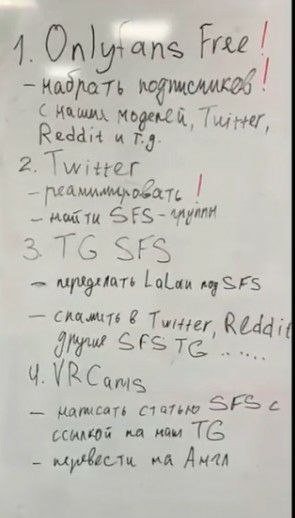 1. Onlyfans Free!
- набрать подписчиков!
с наших моделей, Twitter,
Reddit и т.д.
2. Twitter
- реанимировать!
- найти SFS-группы
3. TG SFS
- переделать LaLau под SFS
- спамить в Twitter, Reddit
другие SFS TG ......
4. VRCams
- написать статью SFS с
ссылкой на наш TG
- перевести на Англ